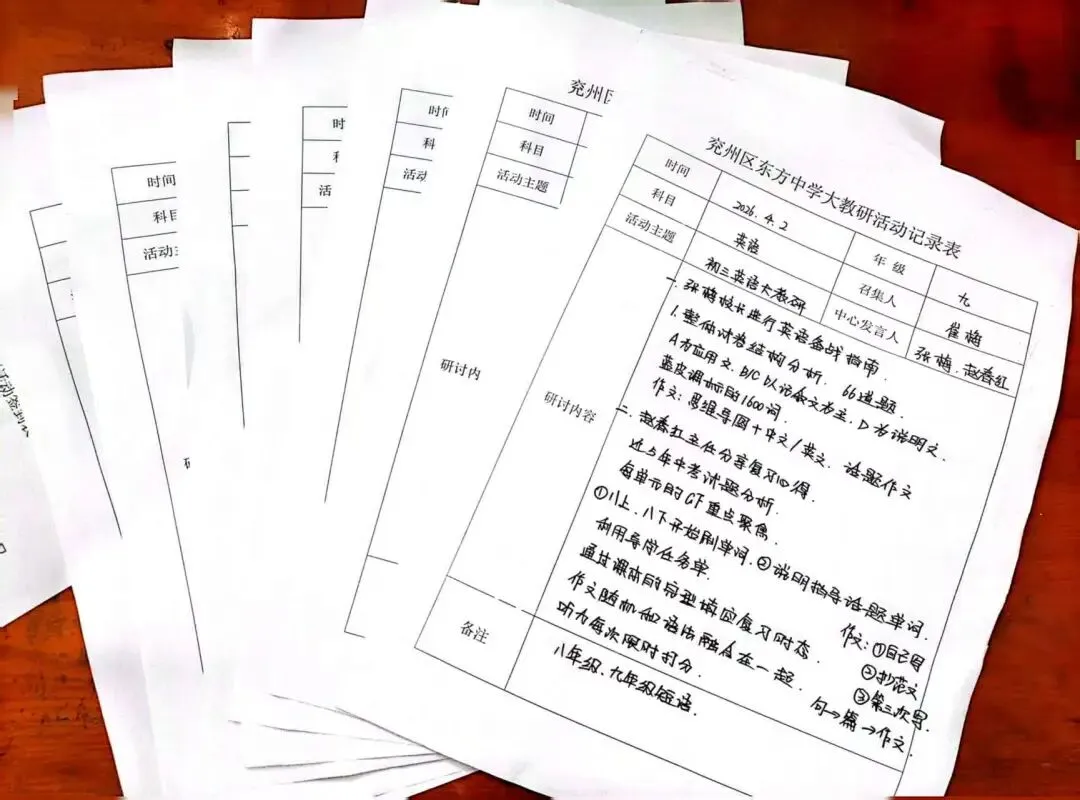 兖州区东方中学大教研活动记录表
时间 2026.4.2 年级 九
科目 英语 召集人 崔梅
活动主题 初三英语大教研 中心发言人 张梅、赵春红
研讨内容
一、张梅校长进行英语备战指南.
1.整体试卷结构分析. 66道题.
A为应用文, B/C以记叙文为主, D为说明文.
蓝皮课标的1600词.
作文: 思维导图+中文/英文. 话题作文
二、赵春红主任分享复习心得.
近5年中考试题分析.
每单元的GF重点聚焦.
①八上、八下开始刷单词. ②说明指导话题单词.
利用导学任务单.
通过课本的完型填应复习时态.
作文随机和语法融合在一起.
听力每次限时打分.
作文: ①自己写
②抄范文
③第三次写.
句→篇→作文.
备注
八年级、九年级短语.
兖州区
时间
科目
活动主题
研讨内
时间
科
活动
时
活
时间
科目
活动主